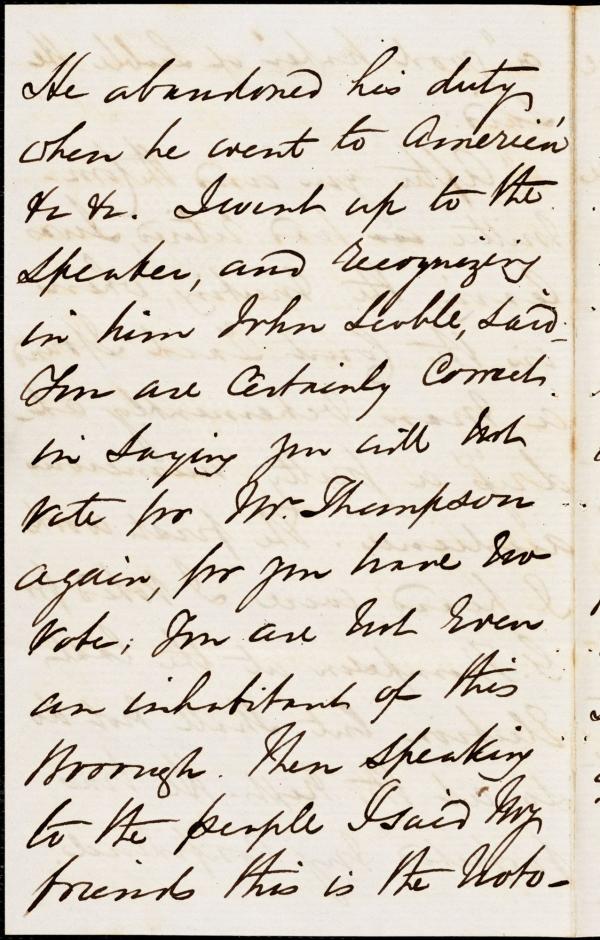 He abandoned his duty
when he went to America
&c &c. I went up to the
speaker, and recognizing
in him John Scoble, said
You are certainly correct
in saying you will not
vote for Mr. Thompson
again, for you have no
vote; You are not even
an inhabitant of this
Borough. Then speaking
to the people I said My
friends this is the noto-